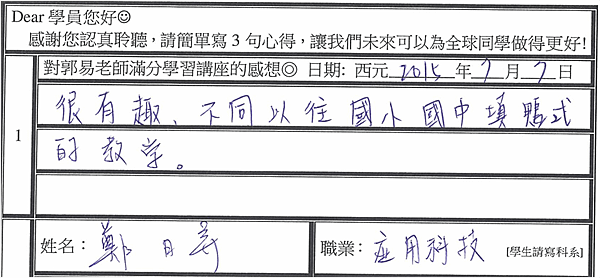 Dear 學員您好☺
感謝您認真聆聽，請簡單寫 3 句心得，讓我們未來可以為全球同學做得更好!
對郭易老師滿分學習講座的感想◎ 日期: 西元 2015 年 7 月 7 日
1
很有趣、不同以往國小國中填鴨式
的教学。
姓名：鄭日
職業：应用科技 [學生請寫科系]